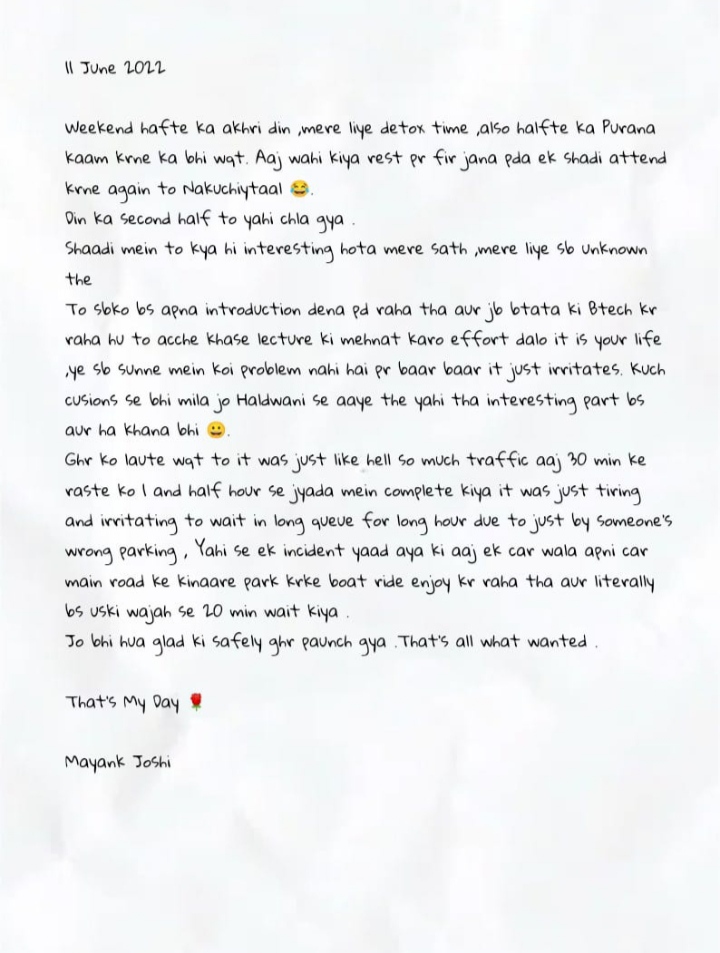 11 June 2022
Weekend hafte ka akhri din ,mere liye detox time ,also halfte ka Purana
kaam krne ka bhi wqt. Aaj wahi kiya rest pr fir jana pda ek shadi attend
krne again to Nakuchiytaal 😂.
Din ka second half to yahi chla gya .
Shaadi mein to kya hi interesting hota mere sath ,mere liye sb unknown
the
To sbko bs apna introduction dena pd raha tha aur jb btata ki Btech kr
raha hu to acche khase lecture ki mehnat karo effort dalo it is your life
,ye sb sunne mein koi problem nahi hai pr baar baar it just irritates. Kuch
cusions se bhi mila jo Haldwani se aaye the yahi tha interesting part bs
aur ha khana bhi 😀.
Ghr ko laute wqt to it was just like hell so much traffic aaj 30 min ke
raste ko 1 and half hour se jyada mein complete kiya it was just tiring
and irritating to wait in long queue for long hour due to just by someone's
wrong parking , Yahi se ek incident yaad aya ki aaj ek car wala apni car
main road ke kinaare park krke boat ride enjoy kr raha tha aur literally
bs uski wajah se 20 min wait kiya .
Jo bhi hua glad ki safely ghr paunch gya .That's all what wanted .
That's My Day 🌹
Mayank Joshi